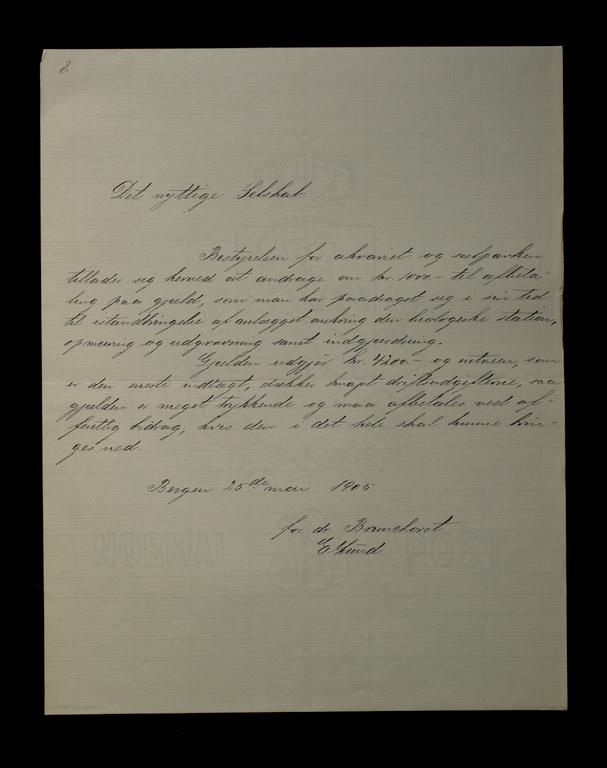 8.
Det nyttige Selskab.
Bestyrelsen for akvariet og sælparken
tillader sig herved at andrage om kr. 1000.- til afbeta-
ling paa gjæld, som man har paadraget sig i sin tid
til istandbringelse af anlægget omkring den biologiske station,
opmuring og udgravning samt indgjerdning.
Gjælden udgjør kr. 4200.- og entréen, som
er den eneste indtægt, dækker knapt driftsudgifterne, saa
gjælden er meget trykkende og maa afbetales ved of-
fentlig bidrag, hvis den i det hele skal kunne brin-
ges ned.
Bergen 25de mai 1905
for dr. Brunchorst